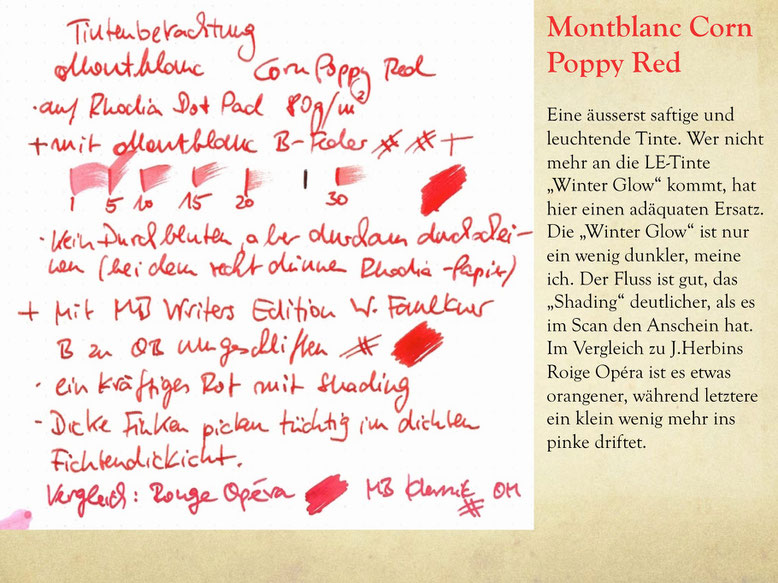 Tintenbetrachtung
Montblanc Corn Poppy Red
· auf Rhodia Dot Pad 80g/m²
+ mit Montblanc B-Feder
1 5 10 15 20 30
· kein Durchbluten, aber durchaus durchschei-
nen (bei dem recht dünnen Rhodia-Papier)
+ Mit MB Writers Edition W. Faulkner
B zu OB umgeschliffen
· ein kräftiges Rot mit Shading
- Dicke Finken picken tüchtig im dichten
Fichtendickicht.
Vergleich: Rouge Opéra MB OM
Montblanc Corn
Poppy Red
Eine äusserst saftige und
leuchtende Tinte. Wer nicht
mehr an die LE-Tinte
„Winter Glow“ kommt, hat
hier einen adäquaten Ersatz.
Die „Winter Glow“ ist nur
ein wenig dunkler, meine
ich. Der Fluss ist gut, das
„Shading“ deutlicher, als es
im Scan den Anschein hat.
Im Vergleich zu J.Herbins
Roige Opéra ist es etwas
orangener, während letztere
ein klein wenig mehr ins
pinke driftet.